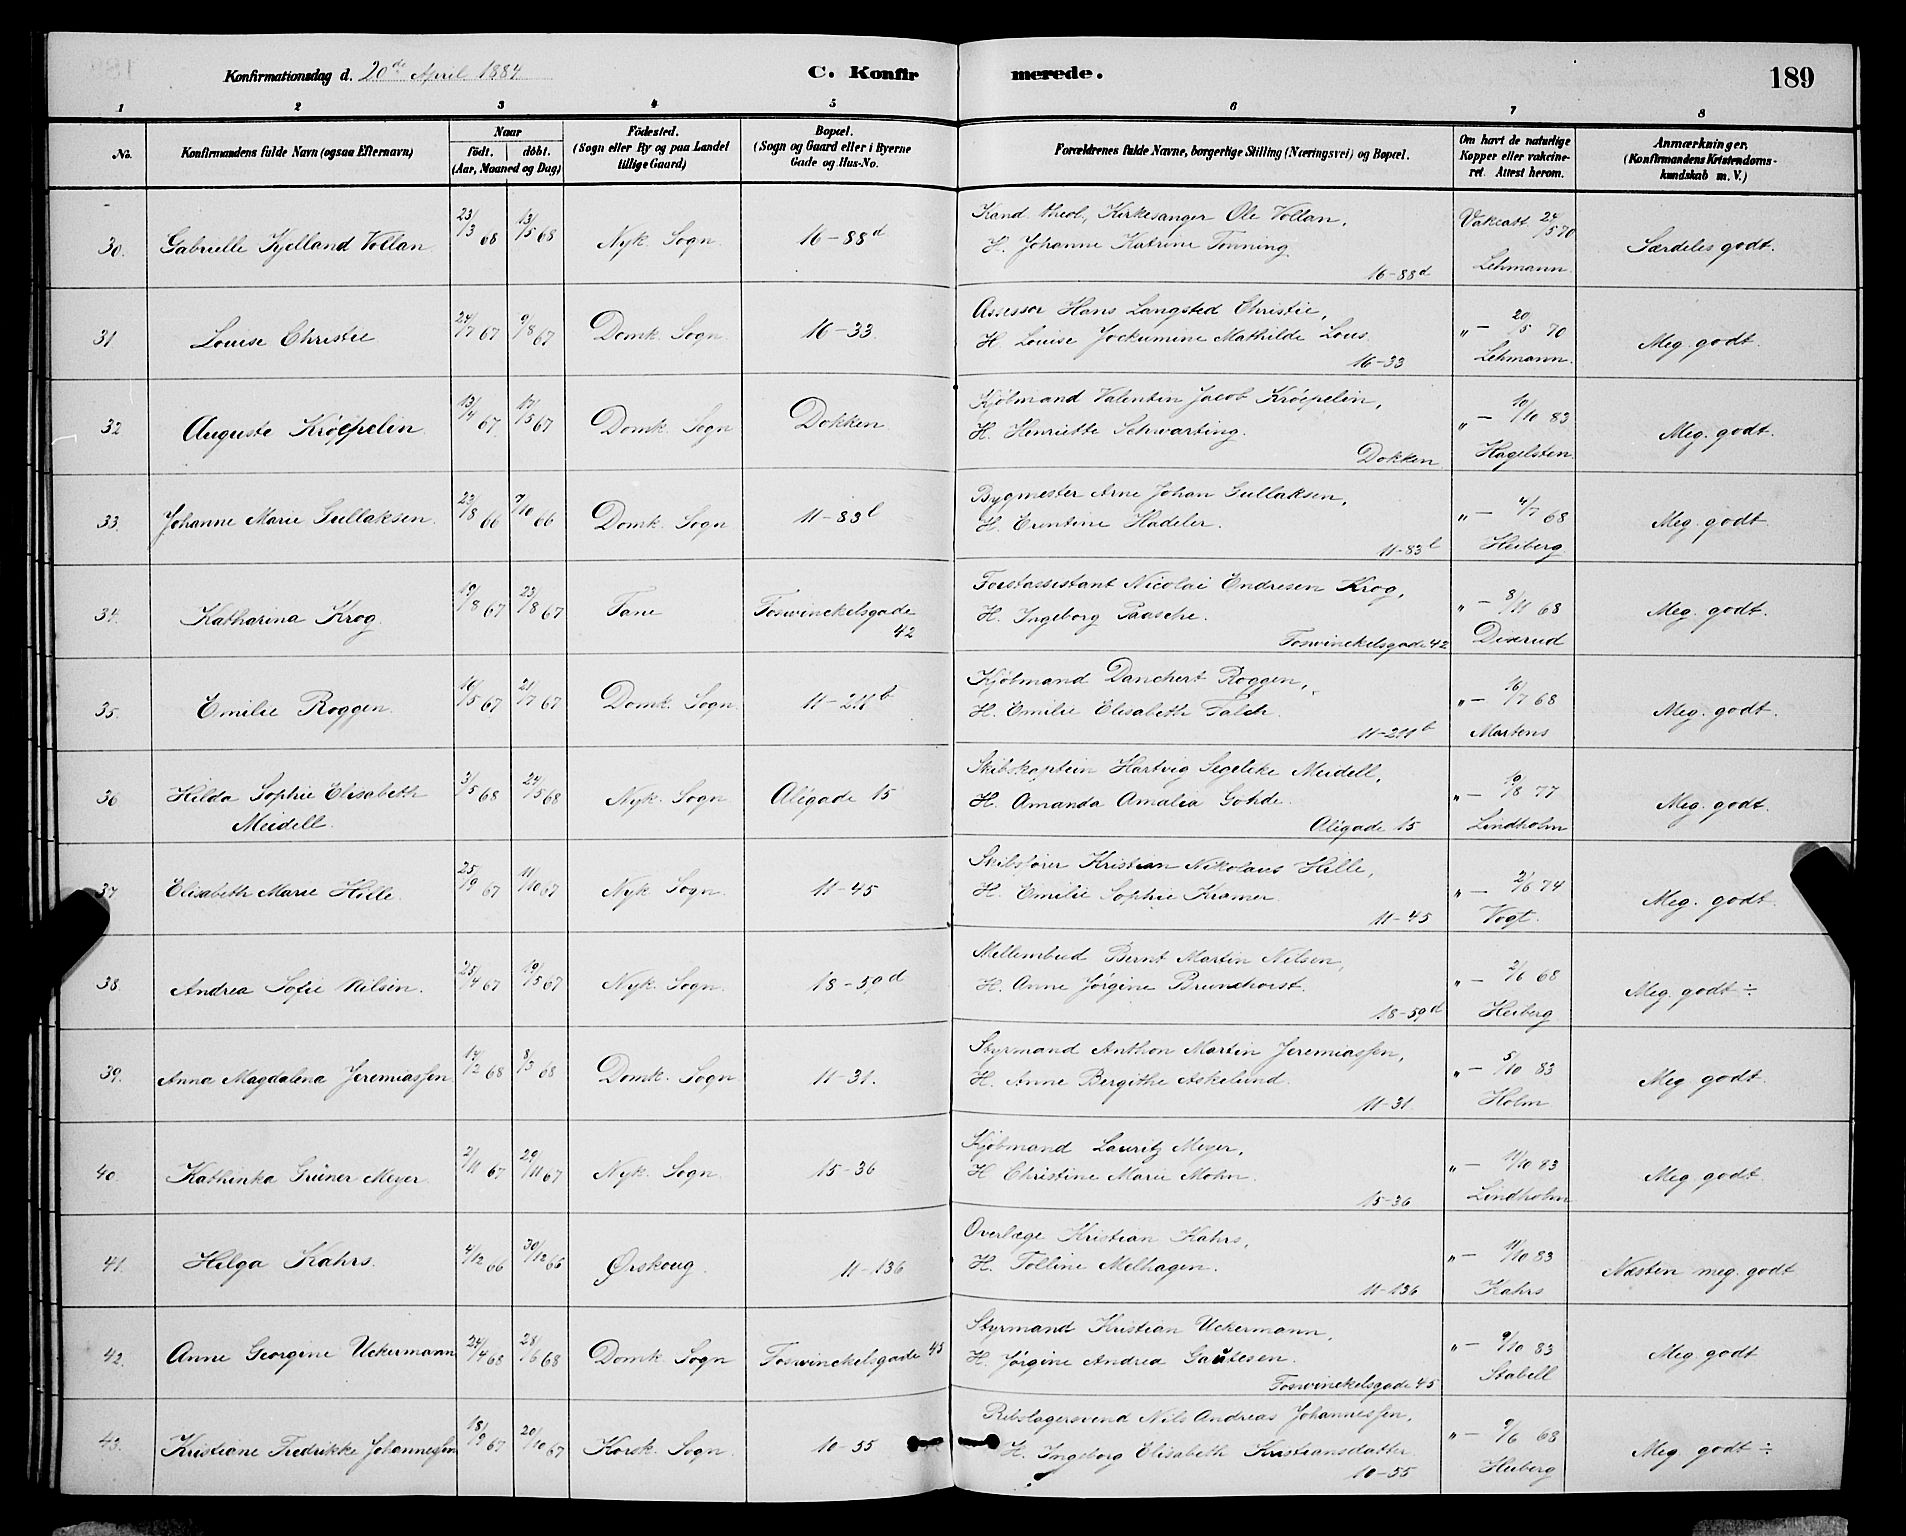 Konfirmationsdag d. 20de April 1884 C. Konfirmerede. 189
1 2 3 4 5 6 7 8
No. Konfirmandens fulde Navn (ogsaa Efternavn) Naar födt. döbt. (Aar, Maaned og Dag) Födested. (Sogn eller By og paa Landet tillige Gaard) Bopæl. (Sogn og Gaard eller i Byerne Gade og Hus-No. Forældrenes fulde Navne, borgerlige Stilling (Næringsvei) og Bopæl. Om havt de naturlige Kopper eller vakcineret. Attest herom. Anmærkninger. (Konfirmandens Kristendomskundskab m. V.)
30. Gabrielle Kjelland Vollan 23/3 68 13/5 68 Nyk. Sogn 16-88d Kand. theol., Kirkesanger Ole Vollan, Vakcatt. 24/5 70 Særdeles godt.
H. Johanne Katrine Tonning
16-88d Lehmann
31. Louise Christie 24/7 67 9/8 67 Domk. Sogn 16-33. Assessor Hans Langsted Christie, „ — 20/5 70 Meg. godt.
H. Louise Jockumine Mathilde Lous
16-33 Lehmann.
32 Auguste Krøepelin 13/4 67. 17/5 67 Domk. Sogn Dokken Kjöbmand Valentin Jacob Krøepelin, „ — 10/10 83 Meg. godt.
H. Henriette Schwarting.
Dokken Hagelsten
33. Johanne Marie Gullaksen. 23/8 66 7/10 66 Domk. Sogn 11-83l Bygmester Arne Johan Gullaksen, „ — 4/7 68 Meg. godt
H. Erentine Hadeler.
11-83l Heiberg
34. Katharina Krog 19/8 67 23/8 67 Fane Foswinckelsgade 42 Forstassistant Nicolai Endresen Krog, „ — 8/11 68 Meg. godt.
H. Ingeborg Paasche.
Foswinckelsgade 42 Disrud
35. Emilie Roggen. 10/5 67 21/7 67 Domk. Sogn 11-211b Kjöbmand Danchert Roggen, „ — 16/7 68 Meg. godt.
H. Emilie Elisabeth Falch.
11-211b Martens
36 Hilda Sophie Elisabeth Meidell. 3/5 68 24/5 68 Nyk. Sogn Allégade 15 Skibskaptein Hartvig Segelcke Meidell, „ — 10/8 77 Meg. godt.
H. Amanda Amalia Gohde.
Allégade 15 Lindholm
37. Elisabeth Marie Hille. 25/9 67 11/10 67 Nyk. Sogn. 11-45 Skibsfører Kristian Nikolaus Hille, „ — 2/6 74 Meg. godt.
H. Emilie Sophie Kramer.
11-45 Vogt.
38 Andrea Sofie Nilsen. 25/4 67 19/5 67 Nyk. Sogn. 18-59d Mellembud Bernt Martin Nilsen, „ — 2/6 68 Meg. godt ÷
H. Anne Jørgine Brunchorst.
18-59d Heiberg
39. Anna Magdalena Jeremiassen 14/2 68 8/3 68 Domk. Sogn 11-31. Styrmand Anthon Martin Jeremiassen, „ — 5/10 83 Meg. godt.
H. Anne Bergithe Askelund.
11-31. Holm
40. Kathinka Grüner Meyer. 2/11 67 29/11 67 Nyk. Sogn. 15-36 Kjöbmand Lauritz Meyer, „ — 11/10 83 Meg. godt
H Christine Marie Mohn.
15-36 Lindholm
41. Helga Kahrs. 4/12 66 30/12 66 Ørskoug. 11-136 Overlæge Kristian Kahrs, „ — 11/10 83 Næsten meg. godt
H. Tolline Melhagen.
11-136 Kahrs
42. Anne Georgine Uckermann 24/4 68 28/6 68 Domk. Sogn Foswinckelsgade 45 Styrmand Kristian Uckermann, „ — 9/10 83 Meg. godt
H. Jørgine Andrea Gautesen.
Foswinckelsgade 45 Stabell
43. Kristiane Fredrikke Johannessen 18/9 67 20/10 67 Korsk. Sogn. 10-55 Rebslagersvend Nils Andreas Johannessen, „ — 9/6 68 Meg. godt ÷
H. Ingeborg Elisabeth Kristiansdatter
10-55 Heiberg